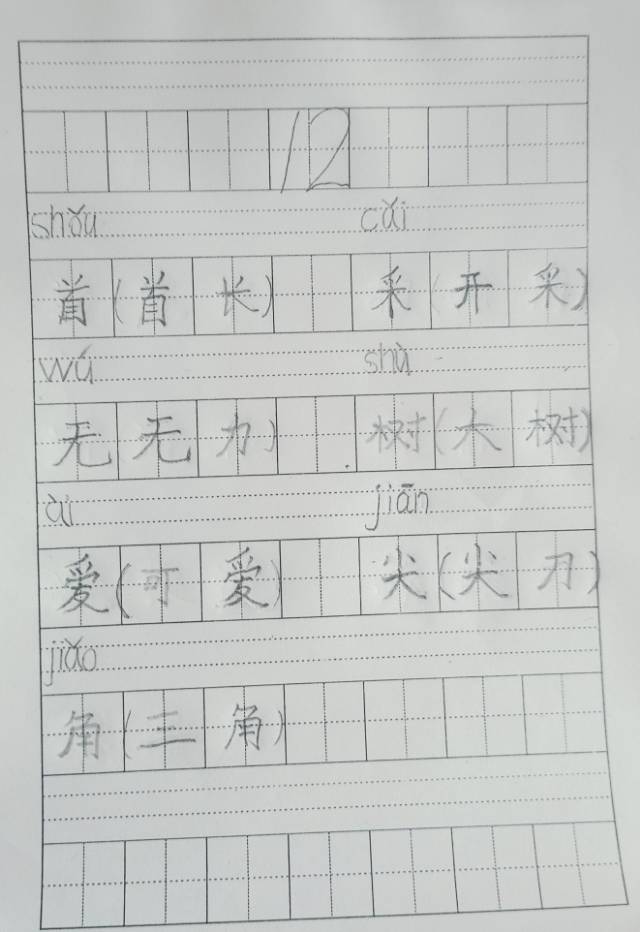 12
shǒu cǎi
首(首长) 采(开采)
wú shù
无无力) 树(大树)
ài jiān
爱(可爱) 尖(尖刀)
jiǎo
角(三角)